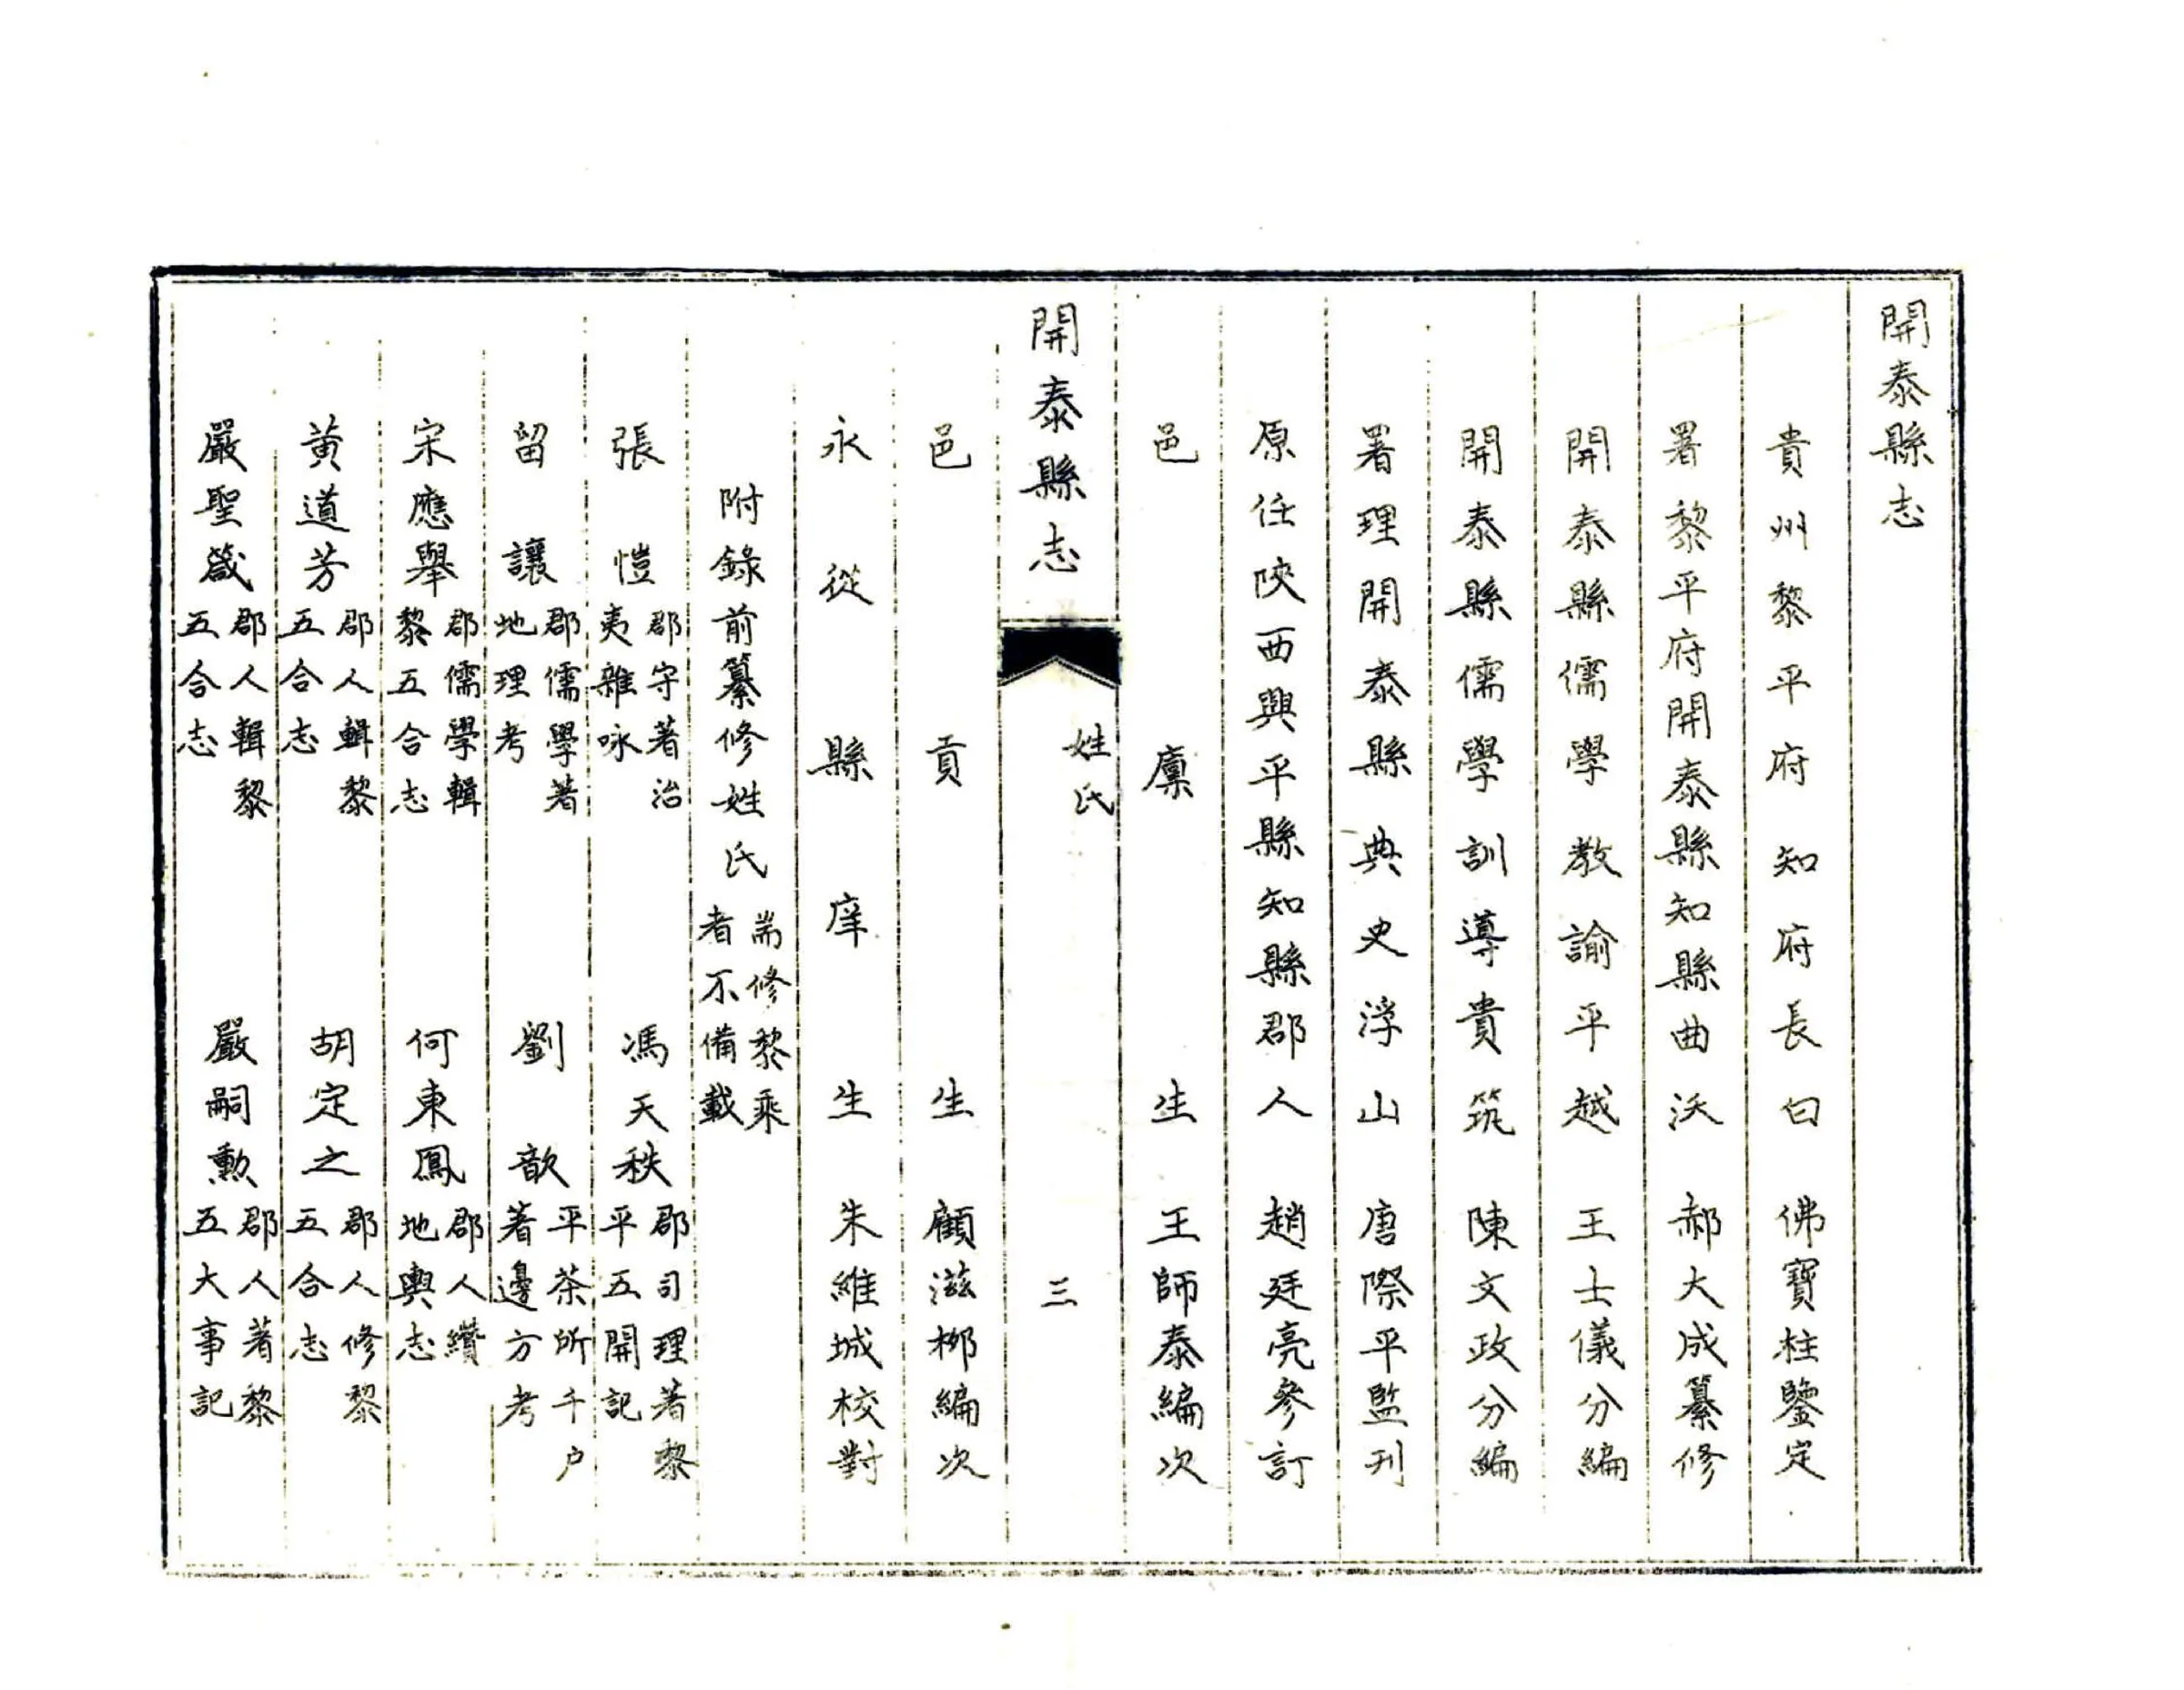 開泰縣志
貴州黎平府知府長白佛寶柱鑒定
署黎平府開泰縣知縣曲沃郝大成纂修
開泰縣儒學教諭平越王士儀分編
開泰縣儒學訓導貴筑陳文政分編
署理開泰縣典史浮山唐際平監刊
原任陝西興平縣知縣郡人趙廷亮參訂
邑廩生王師泰編次
開泰縣志 姓氏 三
邑貢生顧滋栁編次
永從縣庠生朱維城校對
附錄前纂修姓氏 耑修黎乘者不備載
張愷 郡守著治夷雜咏 馮天秩 郡司理著黎平五開記
留讓 郡儒學著地理考 劉歆 平茶所千户著邊方考
宋應舉 郡儒學輯黎五合志 何東鳳 郡人纘地輿志
黄道芳 郡人輯黎五合志 胡定之 郡人修黎五合志
嚴聖箴 郡人輯黎五合志 嚴嗣勳 郡人著黎五大事記